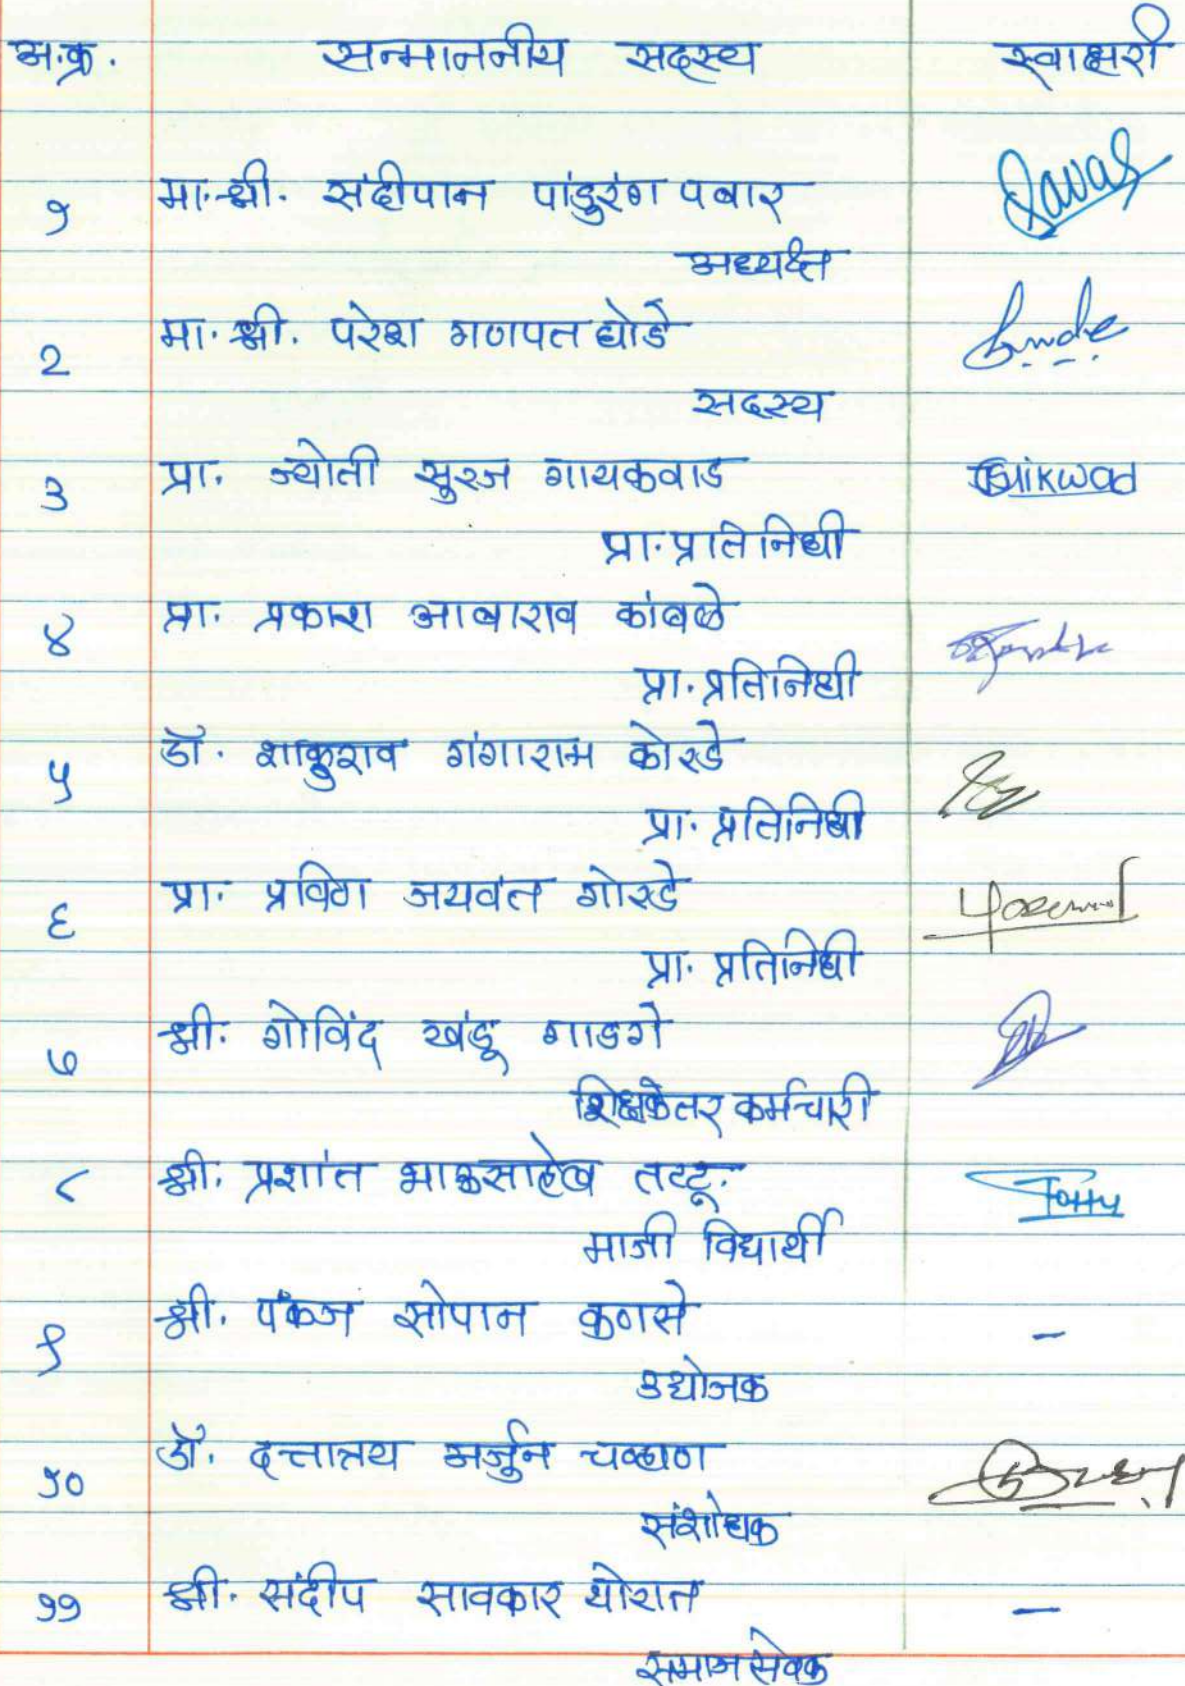 अ.क्र. सन्माननीय सदस्य स्वाक्षरी
१ मा.श्री. संदीपान पांडुरंग पवार Pawar
अध्यक्ष
२ मा.श्री. परेश गणपत घोडे
सदस्य
३ प्रा. ज्योती सुरज गायकवाड Gaikwad
प्रा.प्रतिनिधी
४ प्रा. प्रकाश आबाराव कांबळे
प्रा.प्रतिनिधी
५ डॉ. शाकुराव गंगाराम कोरडे
प्रा. प्रतिनिधी
६ प्रा. प्रविण जयवंत गोरडे
प्रा. प्रतिनिधी
७ श्री. गोविंद खंडू गाडगे
शिक्षकेतर कर्मचारी
८ श्री. प्रशांत भाऊसाहेब तट्टू.
माजी विद्यार्थी
९ श्री. पंकज सोपान कणसे -
उद्योजक
१० डॉ. दत्तात्रय अर्जुन चव्हाण
संशोधक
११ श्री. संदीप सावकार थोरात -
समाजसेवक